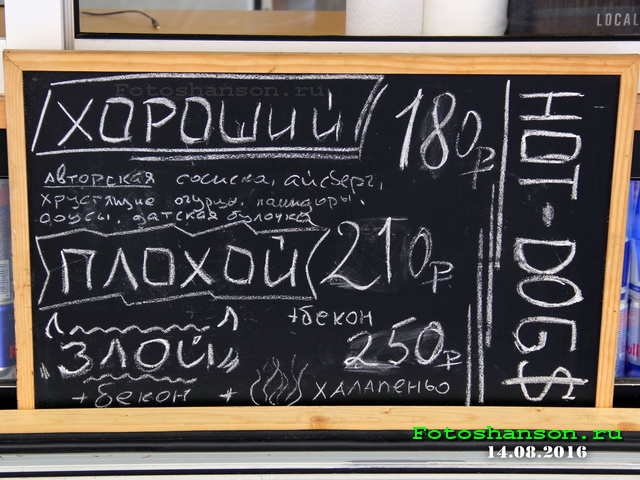 LOCAL
Fotoshanson.ru
ХОРОШИЙ 180р
Авторская сосиска, айсберг,
хрустящие огурцы, помидоры,
соусы, датская булочка
ПЛОХОЙ 210р
+бекон
"ЗЛОЙ" 250р
+бекон + халапеньо
HOT-DOG$
Fotoshanson.ru
14.08.2016